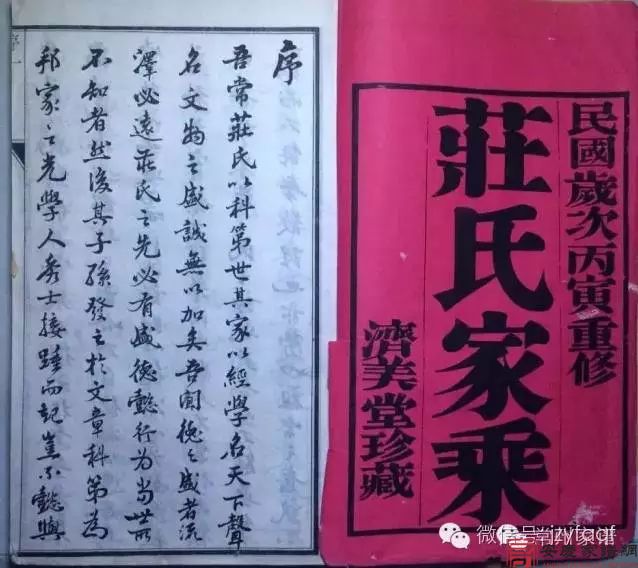 民國歲次丙寅重修
莊氏家乘
濟美堂珍藏
序
吾常莊氏以科第世其家以經學名天下聲
名文物之盛誠無以加矣吾聞德之盛者流
澤必遠莊氏之先必有盛德懿行為當世所
不知者然後其子孫發之於文章科第為
邦家之光學人秀士接踵而起豈不懿與
序一
微信号: jzyfaqf
常州家谱
安慶家譜網